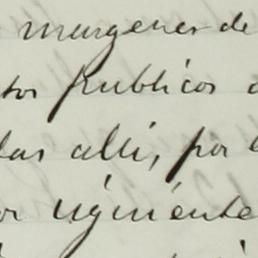 margenes de
tos publicos
las alli, por
or siguiente